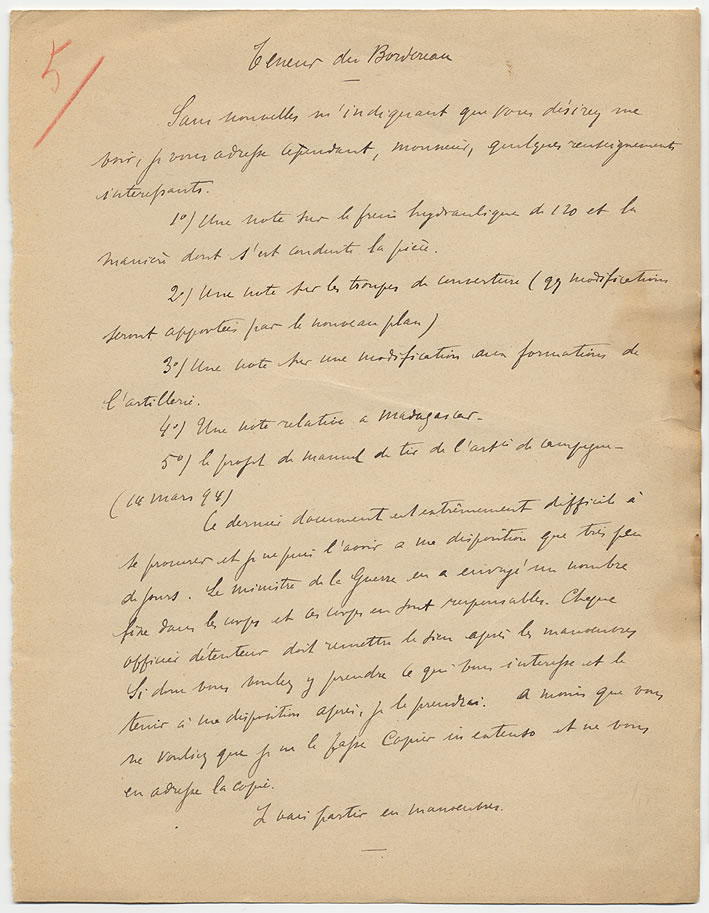 5
Teneur du Bordereau
Sans nouvelles m'indiquant que vous désirez me
voir, je vous adresse cependant, monsieur, quelques renseignements
interessants.
1o) Une note sur le frein hydraulique de 120 et la
manière dont s'est conduite la pièce.
2o) Une note sur les troupes de couverture (qq modifications
seront apportées par le nouveau plan)
3o) Une note sur une modification aux formations de
l'artillerie.
4o) Une note relative a Madagascar-
5o) le projet de manuel de tir de l'artie de campagne-
(14 mars 94)
Ce dernier document est extrêmement difficile à
se procurer et je ne puis l'avoir a ma disposition que très peu
de jours. Le ministre de la Guerre en a envoyé un nombre
fixe dans les corps et ces corps en sont responsables. Chaque
officier détenteur doit remettre le sien après les manoeuvres
Si donc vous voulez y prendre ce qui vous interesse et le
tenir à ma disposition après, je le prendrai. A moins que vous
ne vouliez que je ne le fasse copier in extenso et ne vous
en adresse la copie.
Je vais partir en manoeuvres.